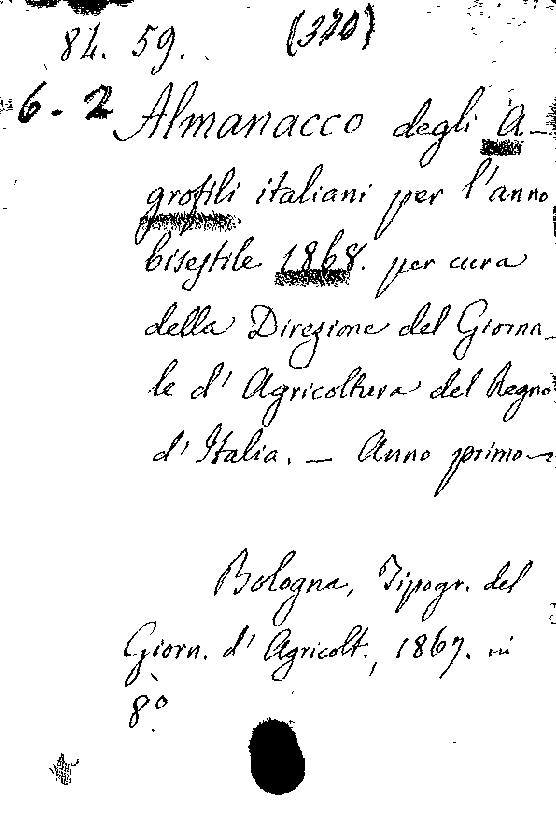 84. 59. (320)
6-2 Almanacco degli A-
grofili italiani per l'anno
bisestile 1868. per cura
della Direzione del Giorna-
le d'Agricoltura del Regno
d'Italia. — Anno primo —
Bologna, Tipogr. del
Giorn. d'Agricolt., 1867. in
8º